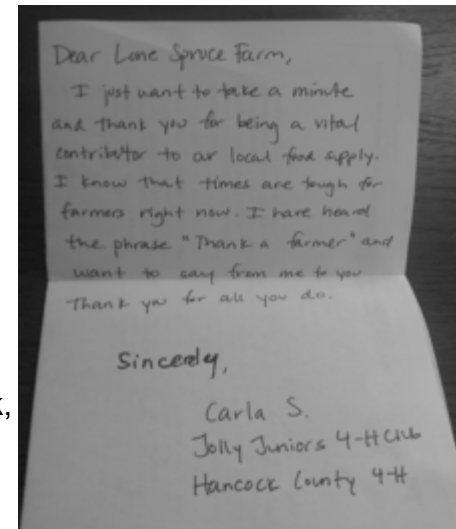 Dear Lone Spruce Farm,
I just want to take a minute
and thank you for being a vital
contributor to our local food supply.
I know that times are tough for
farmers right now. I have heard
the phrase "Thank a farmer" and
want to say from me to you
Thank you for all you do.
Sincerely,
Carla S.
Jolly Juniors 4-H Club
Hancock County 4-H